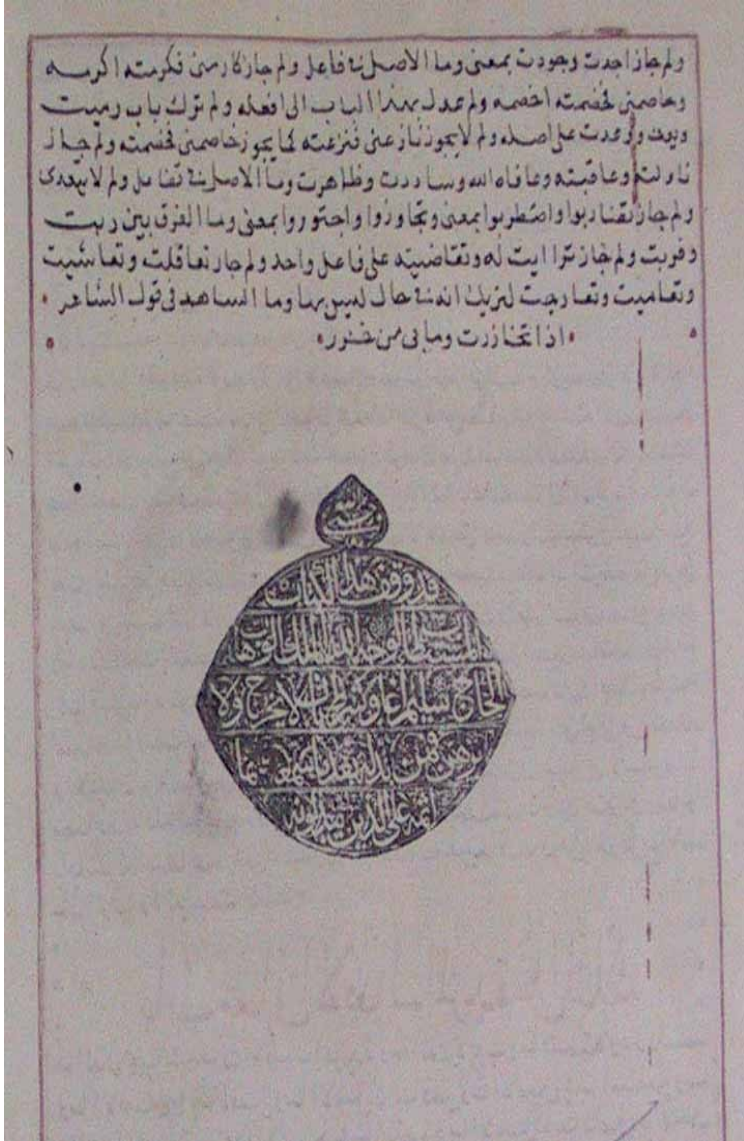 ولم جاز اجدت وجودت بمعنى وما الاصل في فاعل ولم جاز كارمنى فكرمته اكرمه
وخاصمنى فخصمته اخصمه ولم عدل بهذا الباب الى افعله ولم ترك باب رميت
وبعت ووعدت على اصله ولم لا يجوز نازعنى فنزعته كما يجوز خاصمنى فخصمته ولم جاز
ناولته وعاقبته وعافاه الله وساددت وظاهرت وما الاصل في تفاعل ولم لا يتعدى
ولم جاز تضاربوا واضطربوا بمعنى وتجاوروا واجتوروا بمعنى وما الفرق بين ريت
وقربت ولم جاز تراايت له وتقاضيته على فاعل واحد ولم جاز تغافلت وتعاشيت
وتعاميت وتعارجت لتريك انه في حال ليس بها وما الشاهد في قول الشاعر
اذا تخازرت وما بى من خزر
قد وقف هذا الكتاب
لوجه الله الملك الوهاب
الحاج سليم اغا وشرط ان لا يخرج ولا
يرهن فمن بدله بعد ما سمعه فانما
اثمه على الذين يبدلونه